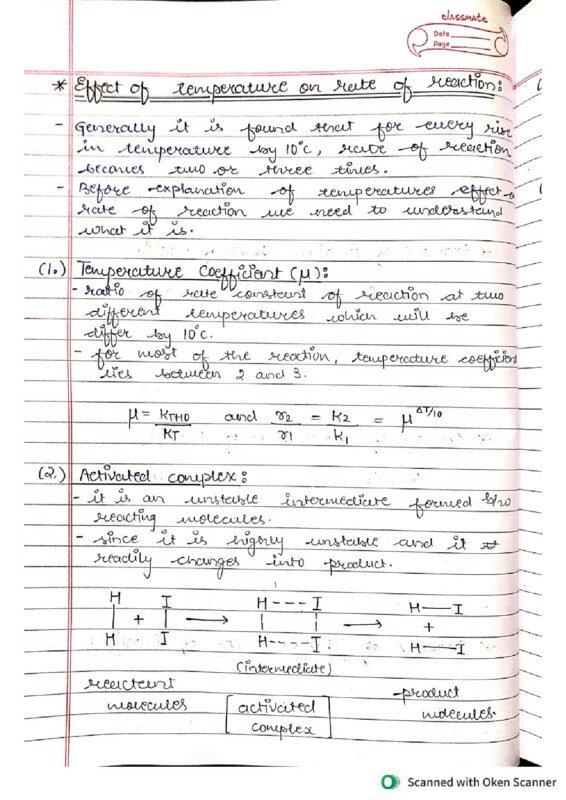 classmate
Date
Page
* Effect of temperature on rate of reaction:
- Generally it is found that for every rise
in temperature by 10°C, rate of reaction
becomes two or three times.
- Before explanation of temperatures effect
rate of reaction we need to understand
what it is.
(1.) Temperature Coefficient (μ):
- ratio of rate constant of reaction at two
different temperatures which will be
differ by 10°C.
- for most of the reaction, temperature coefficient
lies between 2 and 3.
μ = KT+10 / KT and r2 / r1 = K2 / K1 = μ^ΔT/10
(2.) Activated complex:
- it is an unstable intermediate formed b/w
reacting molecules.
- since it is highly unstable and it
readily changes into product.
H I H --- I H — I
| + | → | | → +
H I H --- I H — I
(intermediate)
reactant product
molecules [activated complex] molecules.
Scanned with Oken Scanner